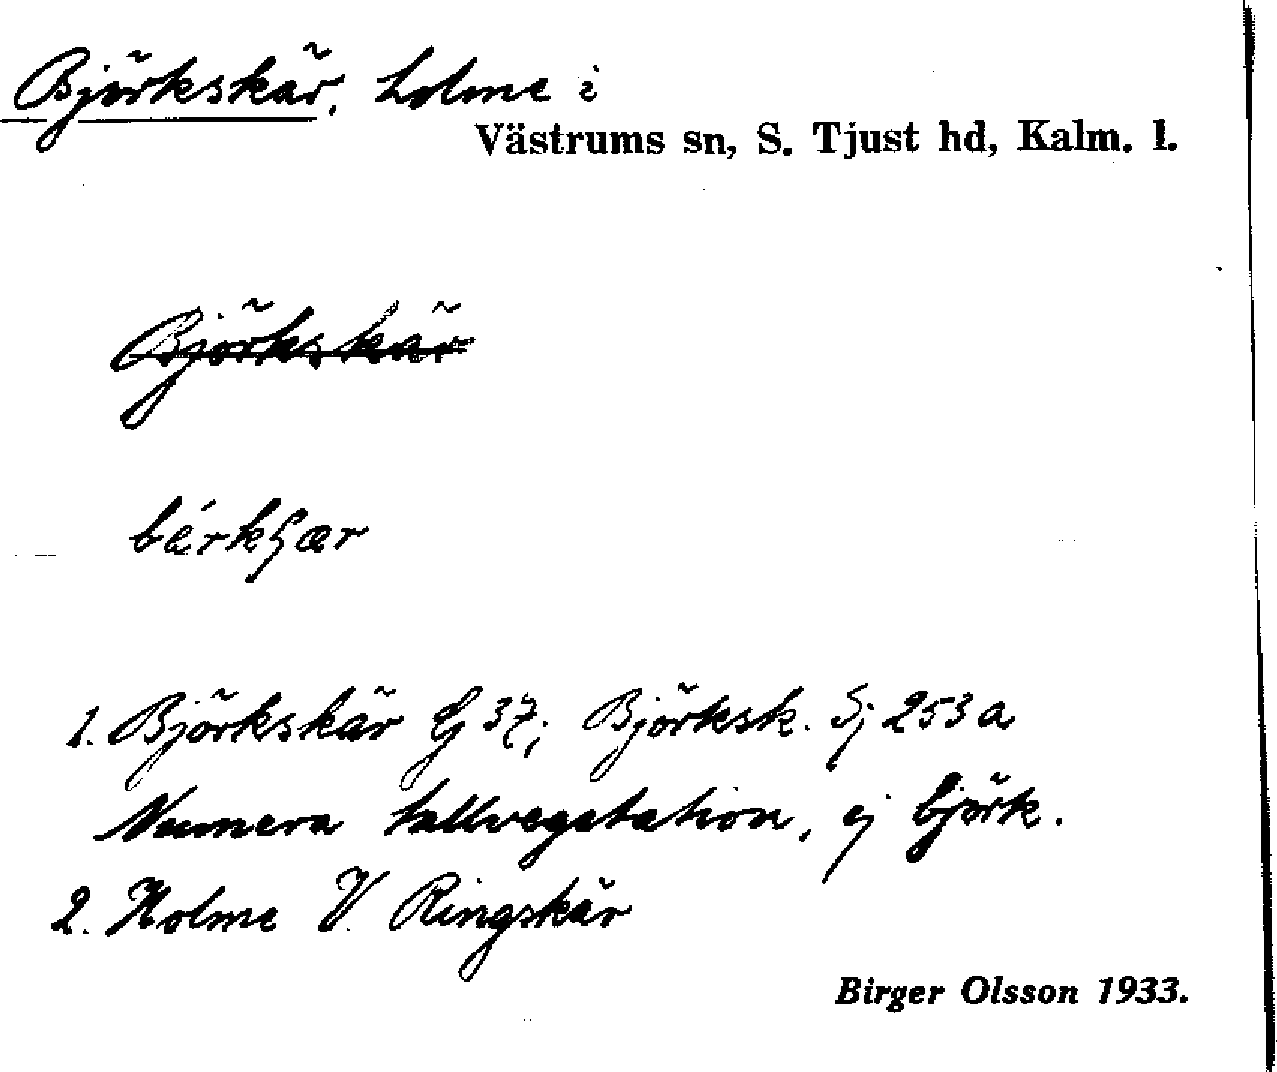 Björkskär, holme i
Västrums sn, S. Tjust hd, Kalm. l.
Björkskär
1. Björkskär G 37; Björksk. Sj 253 a
Numera tallvegetation, ej björk.
2. Holme V. Ringskär
Birger Olsson 1933.